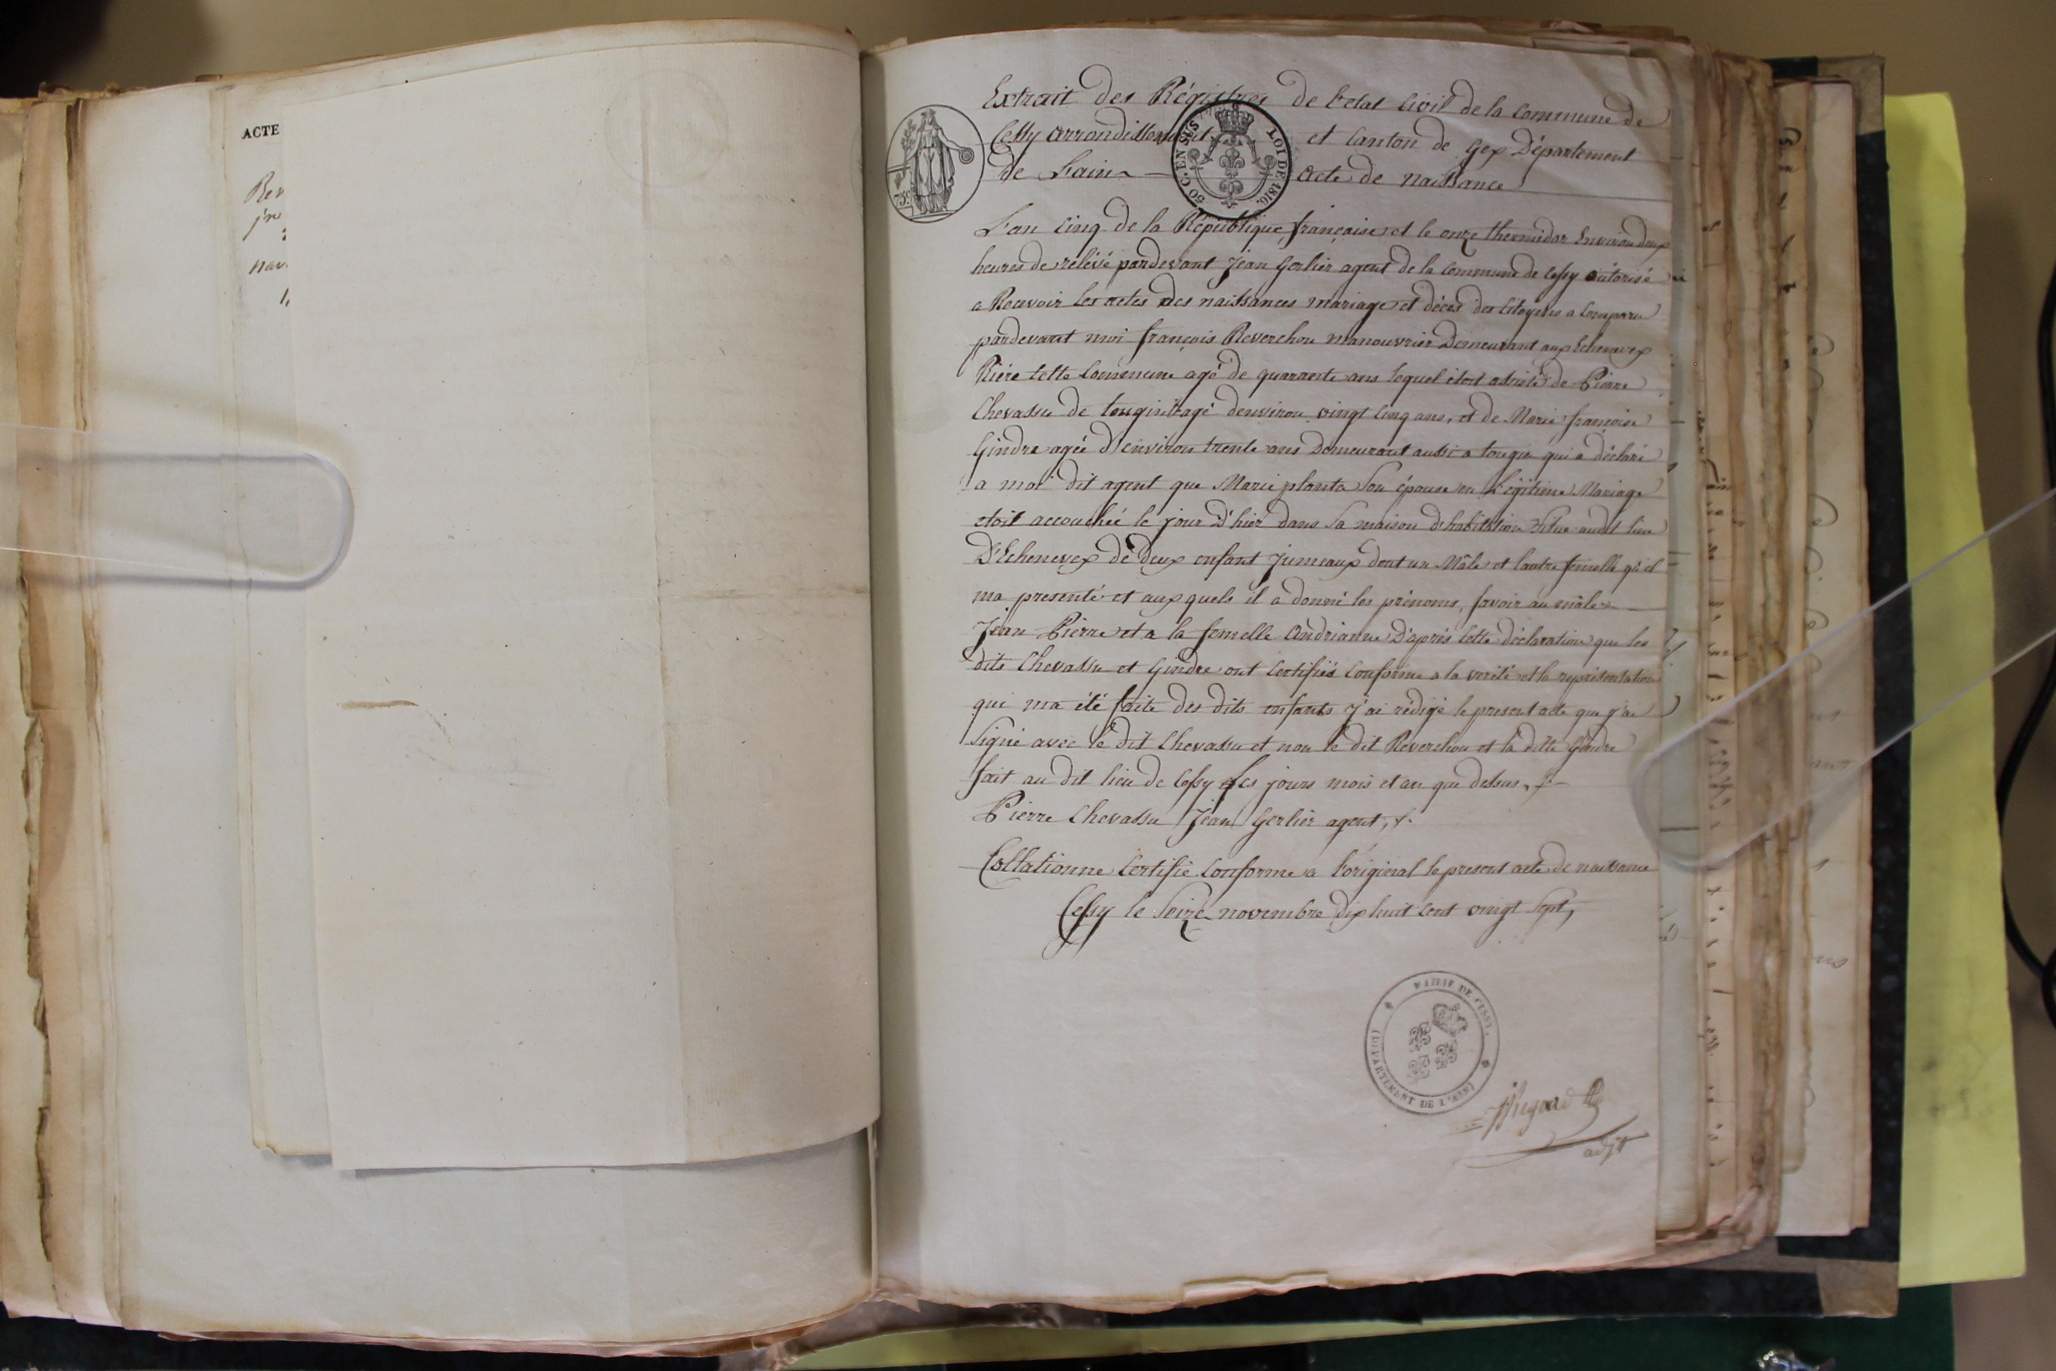 ACTE
Extrait des Régistres de l'etat Civil de la Commune de
Cessy arrondissement et Canton de Gex Département
de L'ain Acte de naissance
50 C. EN SUS
LOI DE 1816.
75 c
L'an Cinq de la République française et le onze thermidor Environ deux
heures de rélévé pardevant Jean Gerlier agent de la Commune de Cessy autorisé
a Recevoir les actes des naissances mariage et décès des Citoyens a Comparu
pardevant moi françois Reverchon manouvrier Demeurant aux Echenevex
Riére Cette Commune agé de quarante ans lequel étoit assisté de Pierre
Chevassu de tougin agé d'environ vingt Cinq ans, et de Marie françoise
Gindre agée d'environ trente ans Demeurant aussi a tougin qui a déclaré
a moi dit agent que Marie planta Son épouse en Légitime Mariage
etoit accouchée le jour D'hier dans Sa maison d'habitation Situe audit lieu
D'Echenevex de deux enfant Jumeaux dont un Mâle et l'autre femelle qu'il
ma presenté et auxquels il a donné les prénoms, Savoir au mâle
Jean Pierre et a la femelle Andrianne D'après Cette déclaration que les
dits Chevassu et Gindre ont Certifiés Conforme a la verité et la représentation
qui ma été faite des dits enfants j'ai rédigé le present acte que j'ai
Signé avec le dit Chevassu et non le dit Reverchon et la ditte Gindre
fait au dit lieu de Cessy Les jours mois et an que dessus,
Pierre Chevassu Jean Gerlier agent,
Collationne Certifié Conforme a l'original le present acte de naissance
Cessy le Seize novembre dix huit cent vingt Sept,
MAIRIE DE CESSY
DEPARTEMENT DE L'AIN
adjt